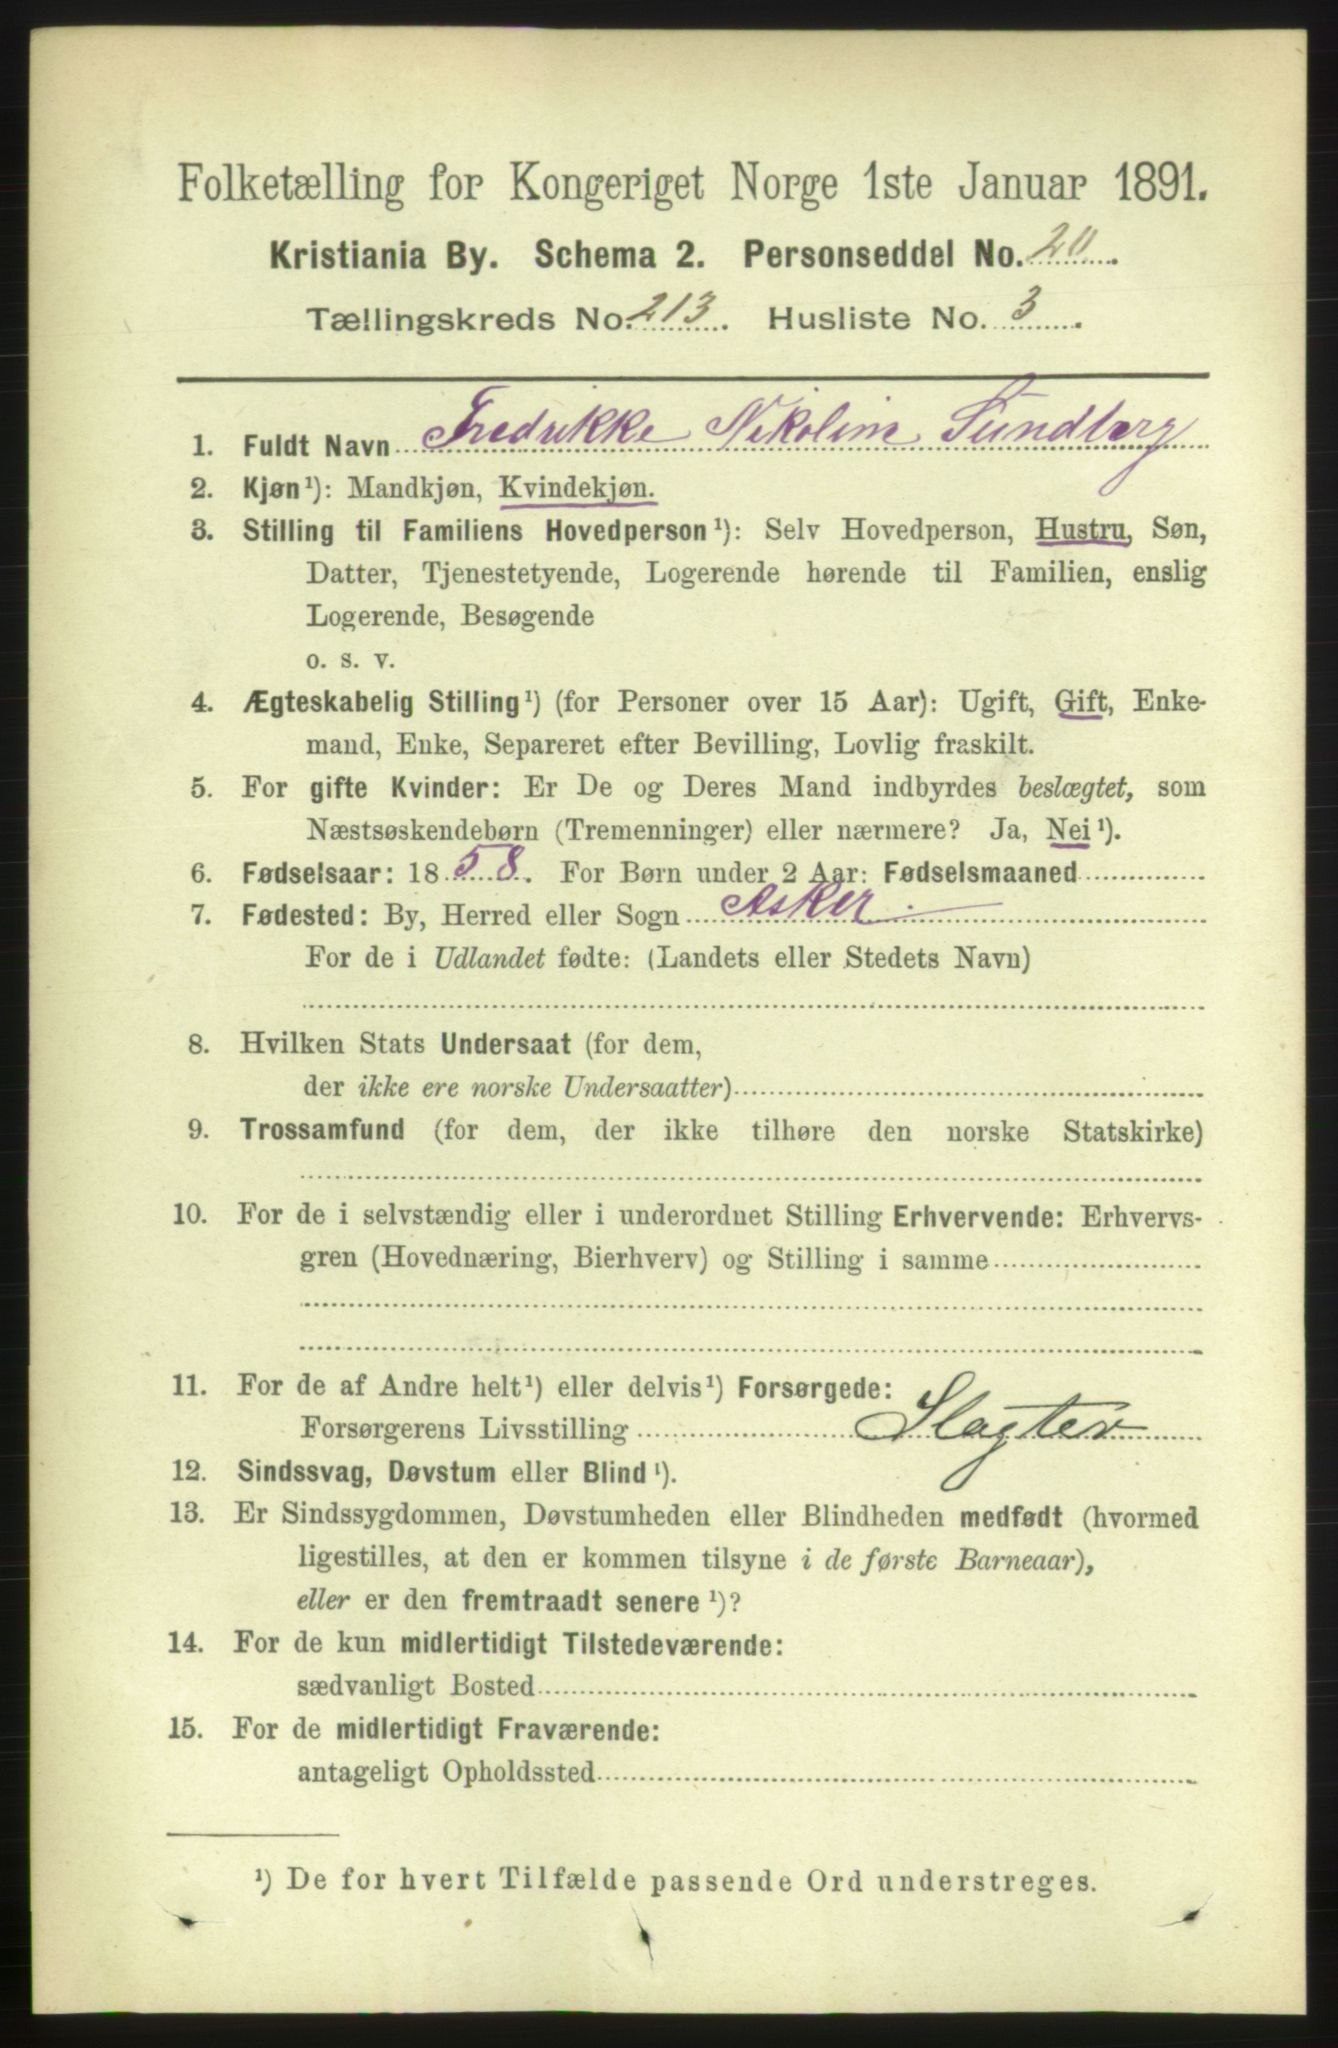 Folketælling for Kongeriget Norge 1ste Januar 1891.
Kristiania By. Schema 2. Personseddel No. 20.
Tællingskreds No. 213. Husliste No. 3.
1. Fuldt Navn Fredrikke Nikoline Sundberg
2. Kjøn¹): Mandkjøn, Kvindekjøn.
3. Stilling til Familiens Hovedperson¹): Selv Hovedperson, Hustru, Søn,
Datter, Tjenestetyende, Logerende hørende til Familien, enslig
Logerende, Besøgende
o. s. v.
4. Ægteskabelig Stilling¹) (for Personer over 15 Aar): Ugift, Gift, Enke-
mand, Enke, Separeret efter Bevilling, Lovlig fraskilt.
5. For gifte Kvinder: Er De og Deres Mand indbyrdes beslægtet, som
Næstsøskendebørn (Tremenninger) eller nærmere? Ja, Nei¹).
6. Fødselsaar: 1858. For Børn under 2 Aar: Fødselsmaaned
7. Fødested: By, Herred eller Sogn Asker.
For de i Udlandet fødte: (Landets eller Stedets Navn)
8. Hvilken Stats Undersaat (for dem,
der ikke ere norske Undersaatter)
9. Trossamfund (for dem, der ikke tilhøre den norske Statskirke)
10. For de i selvstændig eller i underordnet Stilling Erhvervende: Erhvervs-
gren (Hovednæring, Bierhverv) og Stilling i samme
11. For de af Andre helt¹) eller delvis¹) Forsørgede:
Forsørgerens Livsstilling Slagter
12. Sindssvag, Døvstum eller Blind¹).
13. Er Sindssygdommen, Døvstumheden eller Blindheden medfødt (hvormed
ligestilles, at den er kommen tilsyne i de første Barneaar),
eller er den fremtraadt senere¹)?
14. For de kun midlertidigt Tilstedeværende:
sædvanligt Bosted
15. For de midlertidigt Fraværende:
antageligt Opholdssted
¹) De for hvert Tilfælde passende Ord understreges.